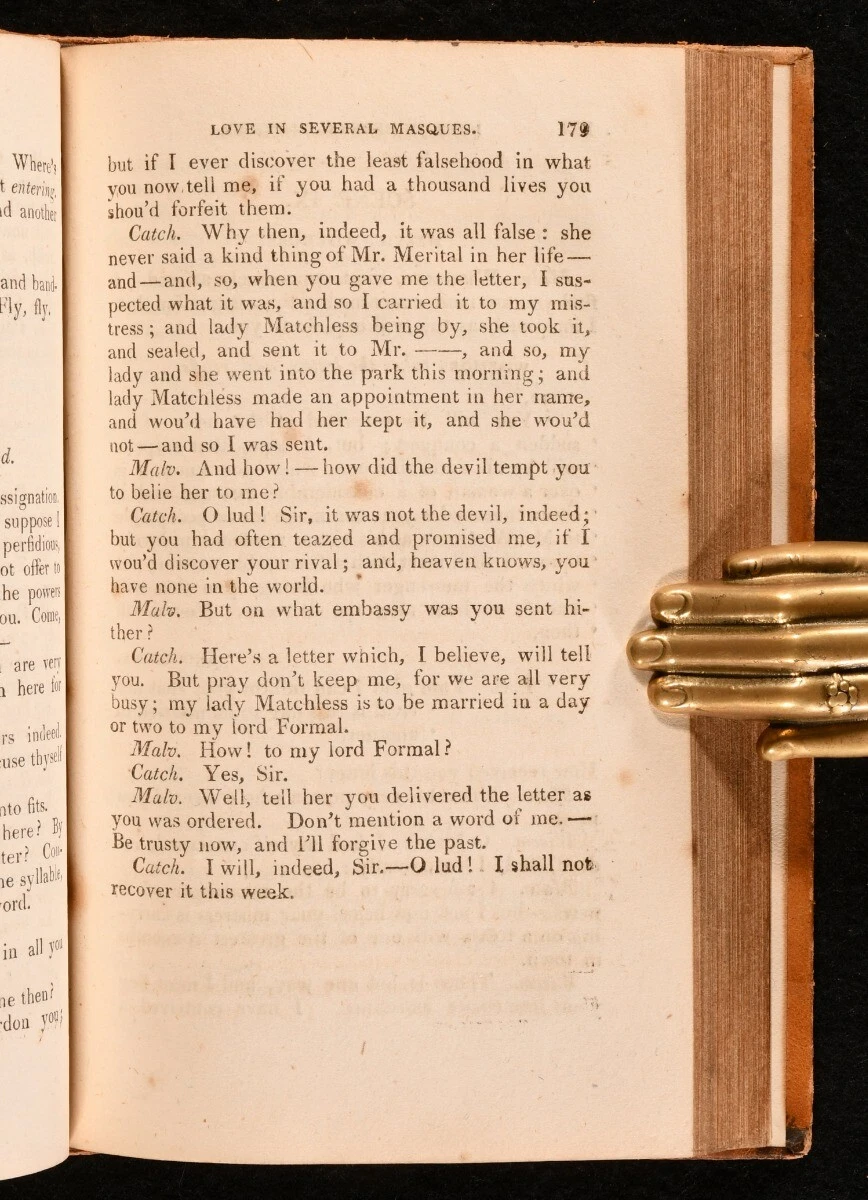 Where's
entering,
another
and band-
Fly, fly,
d.
ssignation.
suppose I
perfidious,
ot offer to
he powers
ou. Come,
—
are very
here for
rs indeed.
cuse thyself
nto fits.
here? By
ter? Con-
ne syllable,
ord.
in all you
ne then?
rdon you;
LOVE IN SEVERAL MASQUES. 179
but if I ever discover the least falsehood in what
you now tell me, if you had a thousand lives you
shou'd forfeit them.
Catch. Why then, indeed, it was all false : she
never said a kind thing of Mr. Merital in her life—
and—and, so, when you gave me the letter, I sus-
pected what it was, and so I carried it to my mis-
tress ; and lady Matchless being by, she took it,
and sealed, and sent it to Mr. ——, and so, my
lady and she went into the park this morning ; and
lady Matchless made an appointment in her name,
and wou'd have had her kept it, and she wou'd
not—and so I was sent.
Malv. And how! — how did the devil tempt you
to belie her to me?
Catch. O lud! Sir, it was not the devil, indeed;
but you had often teazed and promised me, if I
wou'd discover your rival ; and, heaven knows, you
have none in the world.
Malv. But on what embassy was you sent hi-
ther?
Catch. Here's a letter which, I believe, will tell
you. But pray don't keep me, for we are all very
busy ; my lady Matchless is to be married in a day
or two to my lord Formal.
Malv. How! to my lord Formal?
Catch. Yes, Sir.
Malv. Well, tell her you delivered the letter as
you was ordered. Don't mention a word of me. —
Be trusty now, and I'll forgive the past.
Catch. I will, indeed, Sir.—O lud! I shall not
recover it this week.